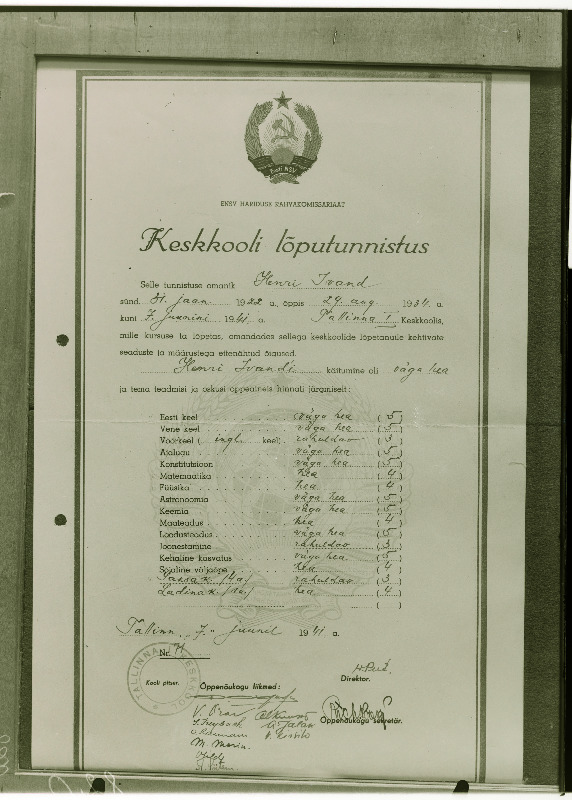 Eesti NSV
ENSV HARIDUSE RAHVAKOMISSARIAAT
Keskkooli lõputunnistus
Selle tunnistuse omanik Henri Ivand
sünd. 31. jaan. 1922 a., õppis 29. aug. 1934. a.
kuni 7. juunini 1941 a. Tallinna I Keskkoolis,
mille kursuse ta lõpetas, omandades sellega keskkoolide lõpetanuile kehtivate
seaduste ja määrustega ettenähtud õigused.
Henri Ivandi käitumine oli väga hea
ja tema teadmisi ja oskusi õppeaineis hinnati järgmiselt:
Eesti keel väga hea (5)
Vene keel väga hea (5)
Võõrkeel (ingl. keel) rahuldav (3)
Ajalugu väga hea (5)
Konstitutsioon väga hea (5)
Matemaatika hea (4)
Füüsika hea (4)
Astronoomia väga hea (5)
Keemia väga hea (5)
Maateadus hea (4)
Loodusteadus väga hea (5)
Joonestamine rahuldav (3)
Kehaline kasvatus väga hea (5)
Sõjaline väljaõpe hea (4)
Saksa k. rahuldav (3)
Ladina k. hea (4)
( )
Tallinn, 7. juunil 1941 a.
Nr. 71
Kooli pitser.
TALLINNA I KESKKOOL
Õppenõukogu liikmed:
Direktor.
Õppenõukogu sekretär.